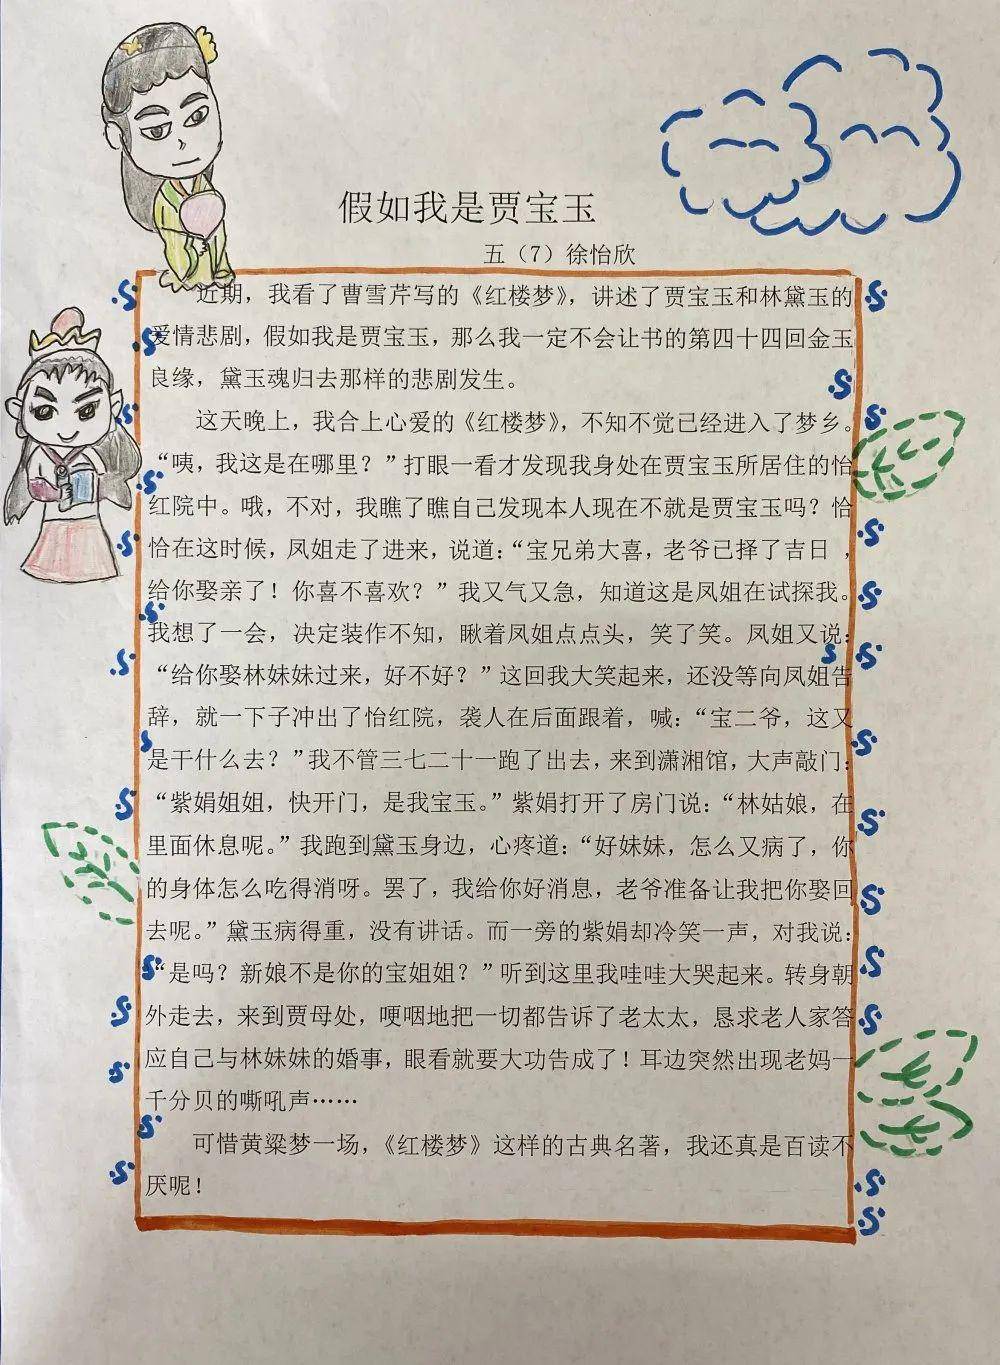 假如我是贾宝玉
五（7）徐怡欣
近期，我看了曹雪芹写的《红楼梦》，讲述了贾宝玉和林黛玉的
爱情悲剧，假如我是贾宝玉，那么我一定不会让书的第四十四回金玉
良缘，黛玉魂归去那样的悲剧发生。
这天晚上，我合上心爱的《红楼梦》，不知不觉已经进入了梦乡。
“咦，我这是在哪里？”打眼一看才发现我身处在贾宝玉所居住的怡
红院中。哦，不对，我瞧了瞧自己发现本人现在不就是贾宝玉吗？恰
恰在这时候，凤姐走了进来，说道：“宝兄弟大喜，老爷已择了吉日 ，
给你娶亲了！你喜不喜欢？”我又气又急，知道这是凤姐在试探我。
我想了一会，决定装作不知，瞅着凤姐点点头，笑了笑。凤姐又说：
“给你娶林妹妹过来，好不好？”这回我大笑起来，还没等向凤姐告
辞，就一下子冲出了怡红院，袭人在后面跟着，喊：“宝二爷，这又
是干什么去？”我不管三七二十一跑了出去，来到潇湘馆，大声敲门：
“紫娟姐姐，快开门，是我宝玉。”紫娟打开了房门说：“林姑娘，在
里面休息呢。”我跑到黛玉身边，心疼道：“好妹妹，怎么又病了，你
的身体怎么吃得消呀。罢了，我给你好消息，老爷准备让我把你娶回
去呢。”黛玉病得重，没有讲话。而一旁的紫娟却冷笑一声，对我说：
“是吗？新娘不是你的宝姐姐？”听到这里我哇哇大哭起来。转身朝
外走去，来到贾母处，哽咽地把一切都告诉了老太太，恳求老人家答
应自己与林妹妹的婚事，眼看就要大功告成了！耳边突然出现老妈一
千分贝的嘶吼声……
可惜黄粱梦一场，《红楼梦》这样的古典名著，我还真是百读不
厌呢！